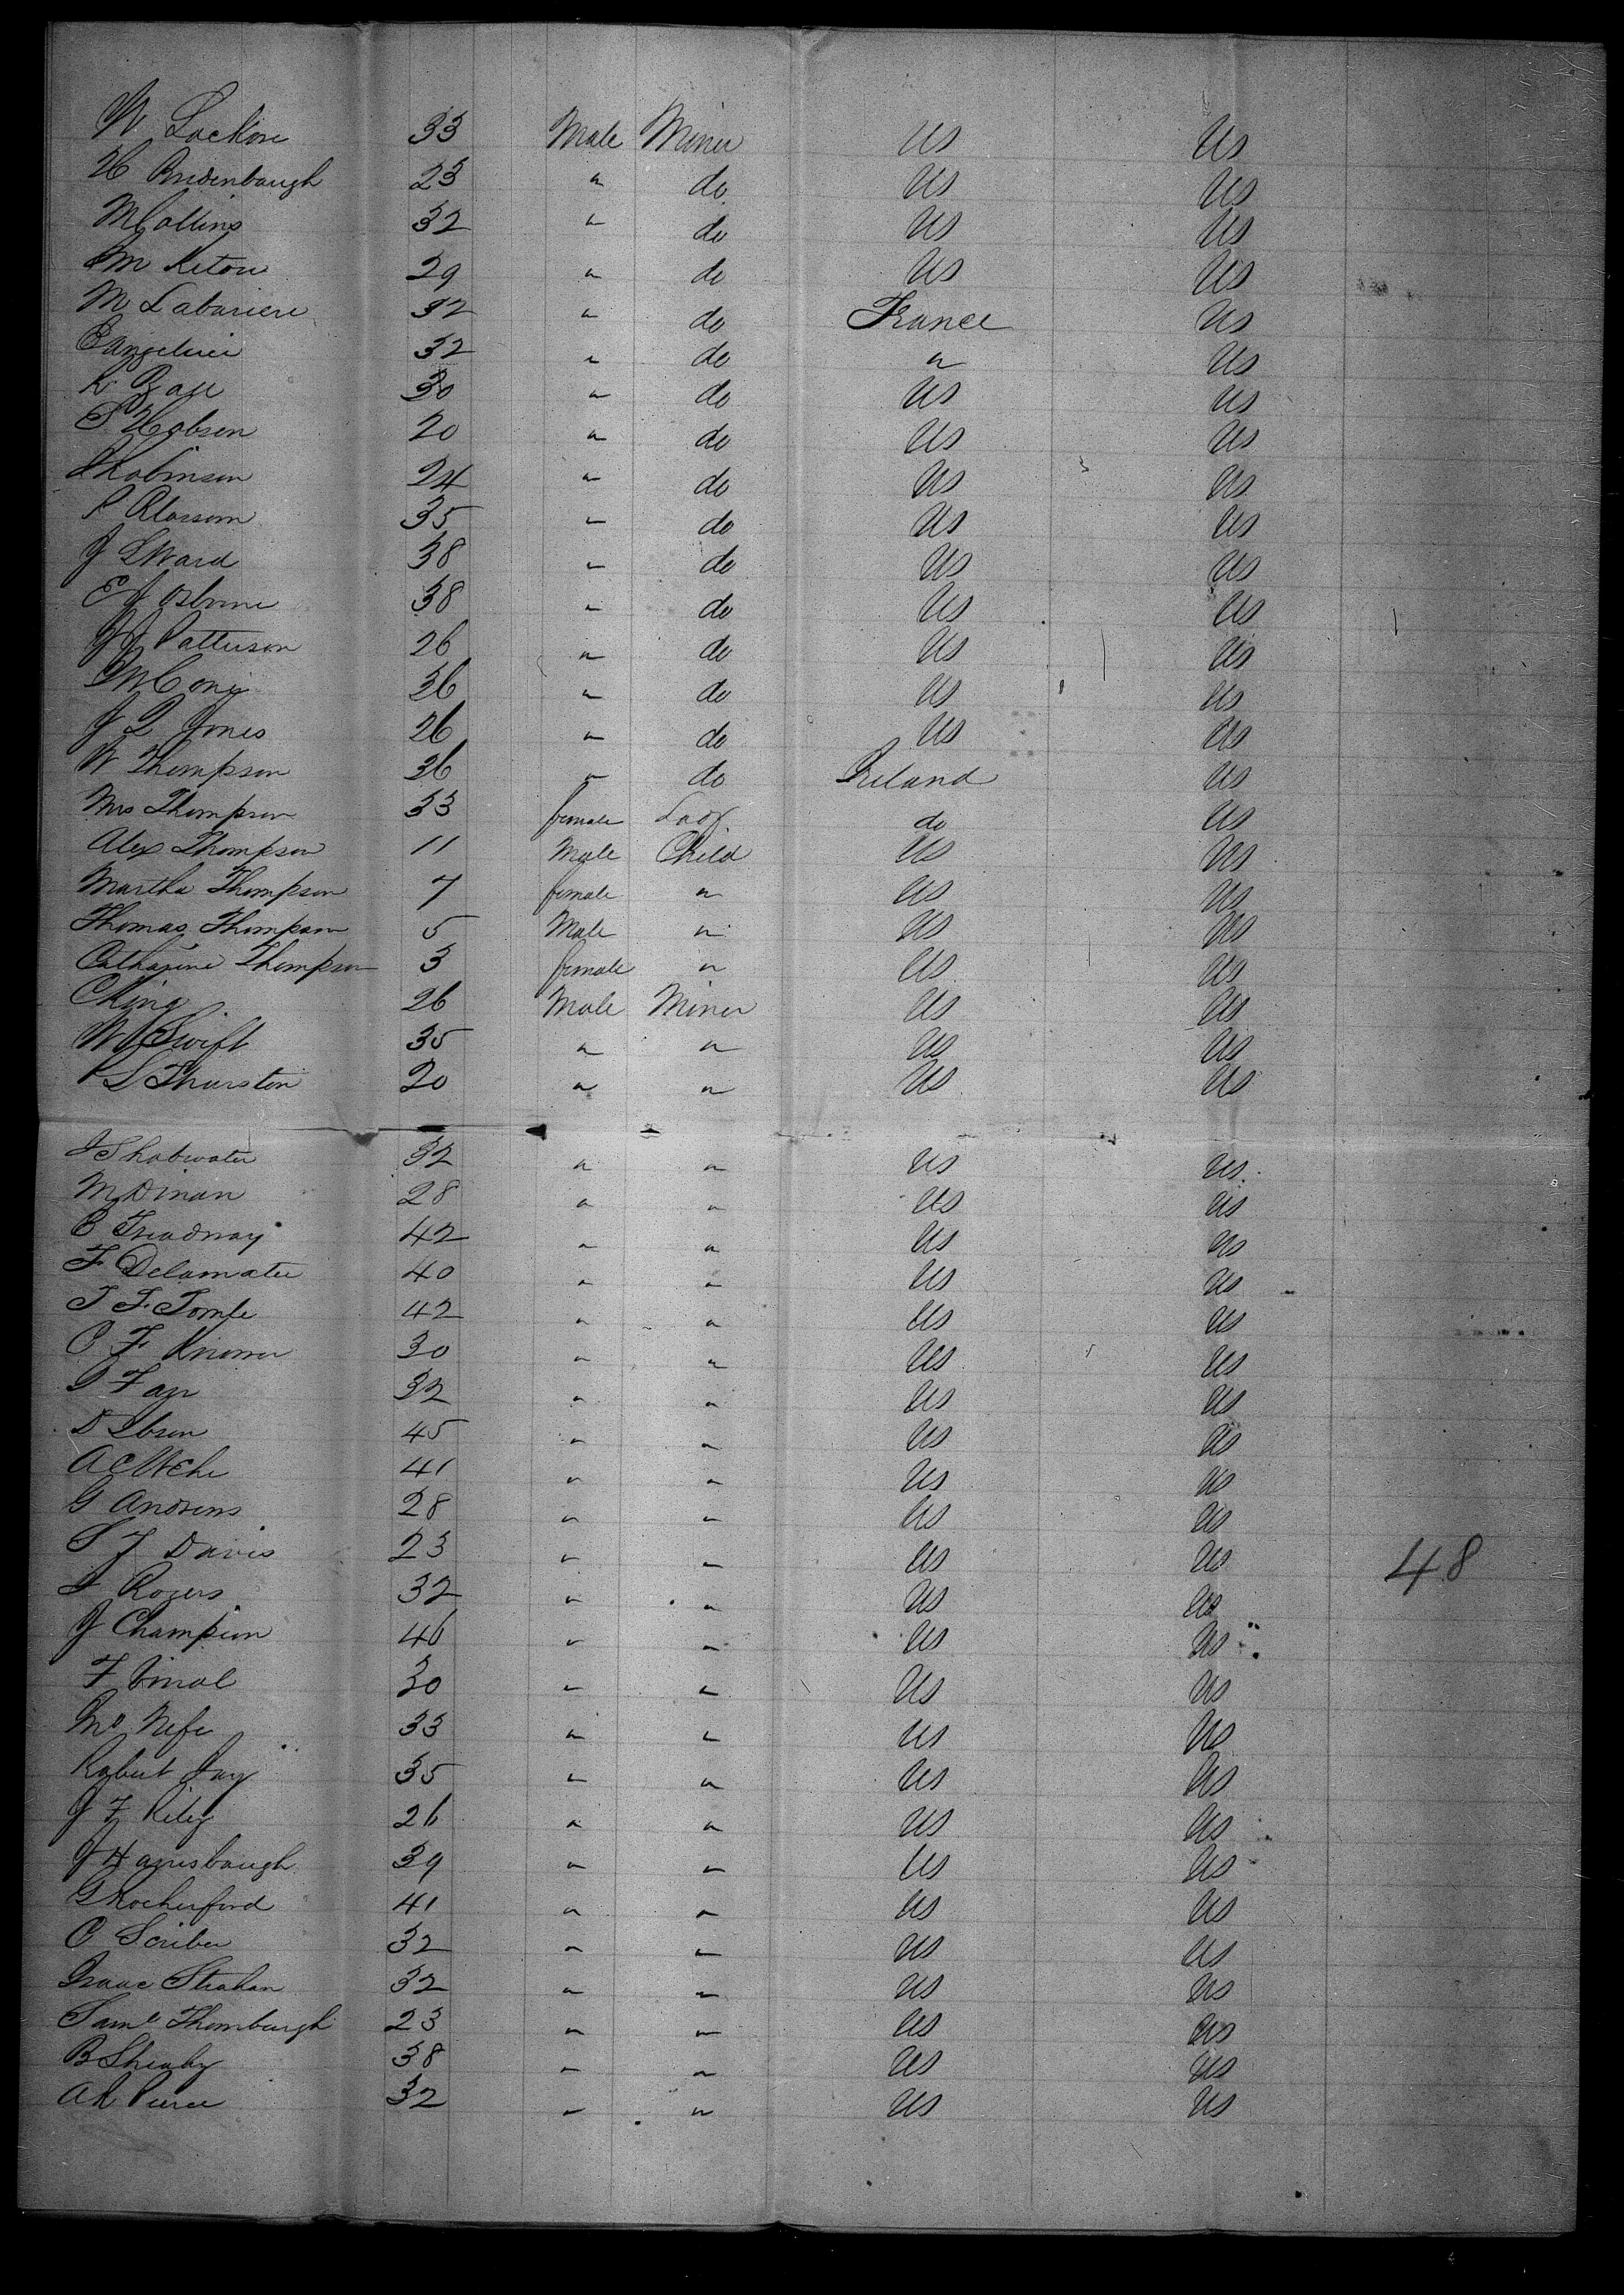 W. 33 Male Miner US US
H Bredenbaugh 23 " do US US
M Collins 32 " do US US
M Keton 29 " do US US
M Labariere 32 " do France US
32 " do " US
30 " do US US
S Hobson 20 " do US US
Robinson 24 " do US US
35 " do US US
J S Ward 38 " do US US
E J Osborne 38 " do US US
J J Patterson 26 " do US US
36 " do US US
J L Jones 26 " do US US
W Thompson 36 " do Ireland US
Mrs Thompson 33 female Lady do US
Alex Thompson 11 Male Child US US
Martha Thompson 7 female " US US
Thomas Thompson 5 Male " US US
Catharine Thompson 3 female " US US
C King 26 Male Miner US US
W Swift 35 " " US US
L Thurston 20 " " US US
32 " " US US
M Dinan 28 " " US US
C Treadway 42 " " US US
F Delamater 40 " " US US
T F 42 " " US US
C F 30 " " US US
32 " " US US
45 " " US US
41 " " US US
G Andrews 28 " " US US
S J Davis 23 " " US US 48
Rogers 32 " " US US
J Champion 46 " " US US
F Vinal 30 " " US US
33 " " US US
Robert Jay 35 " " US US
J F Riley 26 " " US US
J Haynsbaugh 39 " " US US
G Rocherford 41 " " US US
C Scriber 32 " " US US
Isaac Strahan 32 " " US US
Saml Thornburgh 23 " " US US
B 38 " " US US
A R Pierce 32 " " US US